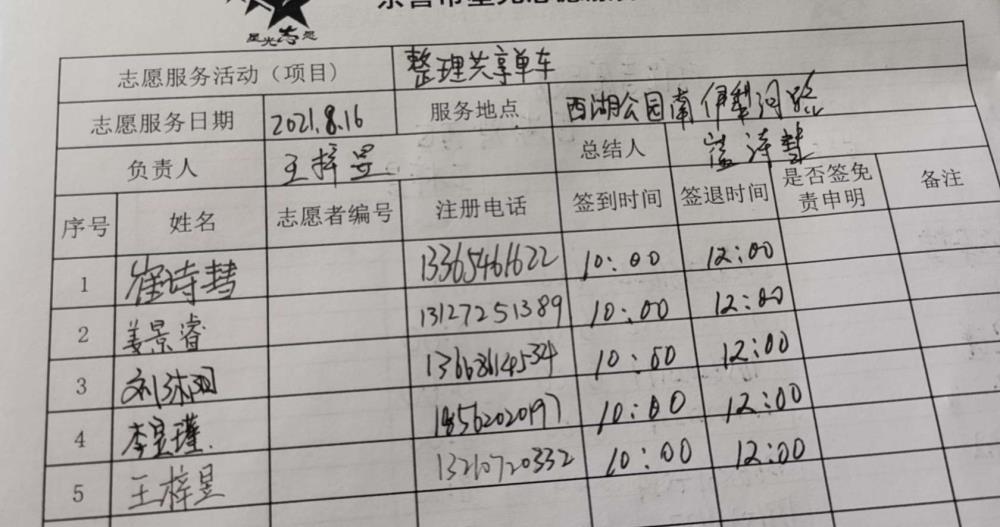 星光志愿
志愿服务活动（项目） 整理共享单车
志愿服务日期 2021.8.16 服务地点 西湖公园南伊犁河路
负责人 王梓昱 总结人 崔诗彗
序号 姓名 志愿者编号 注册电话 签到时间 签退时间 是否签免责申明 备注
1 崔诗彗 13365461622 10:00 12:00
2 姜景睿 13127251389 10:00 12:00
3 刘 13668614534 10:00 12:00
4 李昱瑾 18562020197 10:00 12:00
5 王梓昱 13210720332 10:00 12:00